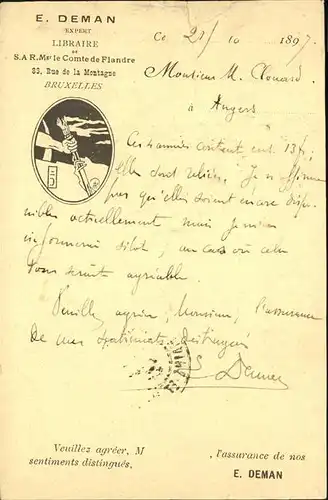 E. DEMAN
EXPERT
LIBRAIRE
DE
S.A.R. Mgr le Comte de Flandre
83, Rue de la Montagne
BRUXELLES
Ce 25/10 1897.
Monsieur M.
à Angers
Ces années coûtent 13 f,
elles sont reliées. Je
pas qu'elles soient encore dispo-
nibles actuellement mais je m'en
sitôt, au cas où cela
vous serait agréable.
Veuillez agréer, Monsieur, l'assurance
De mes sentiments distingués
E. Deman
Veuillez agréer, M , l'assurance de nos
sentiments distingués,
E. DEMAN